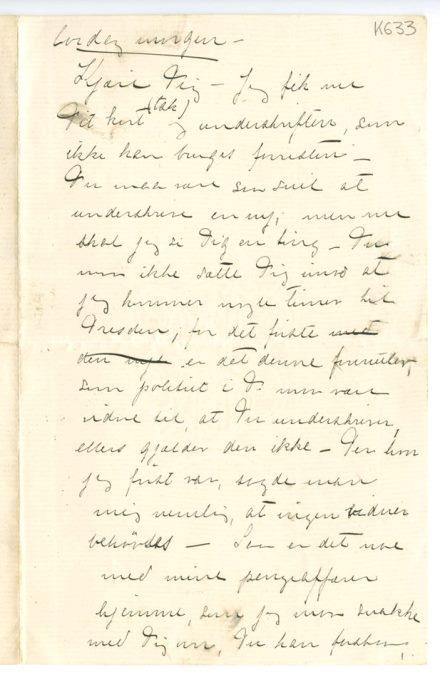 K633
Lørdag morgen –
Kjære Dig – Jeg fik nu
Dit kort (tak) og underskriften, som
ikke kan bruges forresten –
Du maa være saa snil at
underskrive en ny; men nu
skal jeg si Dig en ting – Du
maa ikke sætte Dig imod at
jeg kommer nogle timer til
Dresden, for det første med
den nye er det denne formular,
som politiet i D. maa være
vidne til, at Du underskriver,
ellers gjælder den ikke – Der hvor
jeg først var, sagde man
mig nemlig, at ingen vidner
behøvdes – Saa er det noe
med mine pengeaffærer
hjemme, som jeg maa snakke
med Dig om, Du kan forstaa,